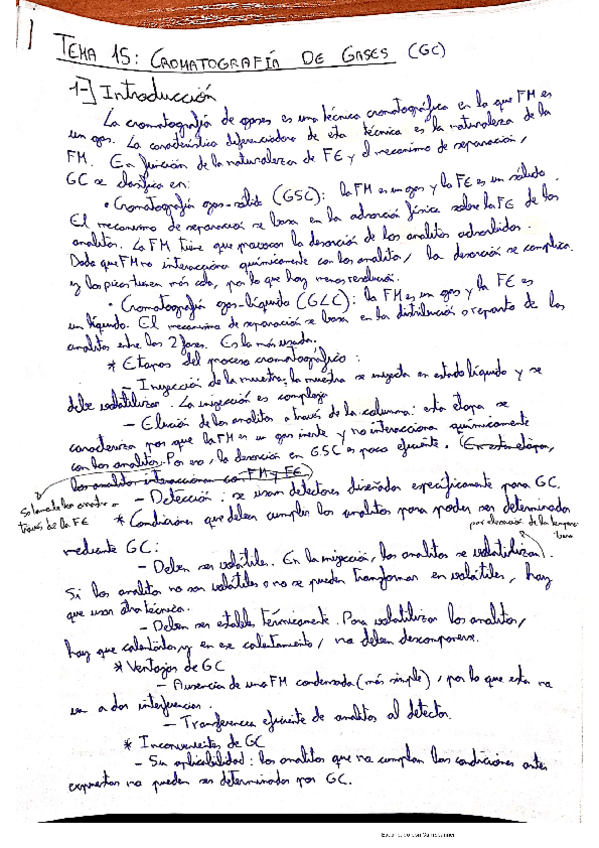 TEMA 15: CROMATOGRAFÍA DE GASES (GC)
1-] Introducción
La cromatografía de gases es una técnica cromatográfica en la que FM es
un gas. La característica diferenciadora de esta técnica es la naturaleza de la
FM. En función de la naturaleza de FE y el mecanismo de separación,
GC se clasifica en:
• Cromatografía gas-sólido (GSC): la FM es un gas y la FE es un sólido.
El mecanismo de separación se basa en la adsorción física sobre la FE de los
analitos. La FM tiene que provocar la desorción de los analitos adsorbidos.
Dado que FM no interacciona químicamente con los analitos, la desorción se complica
y los picos tienen más cola, por lo que hay menos resolución.
• Cromatografía gas-líquido (GLC): la FM es un gas y la FE es
un líquido. El mecanismo de separación se basa en la distribución o reparto de los
analitos entre las 2 fases. Es la más usada.
* Etapas del proceso cromatográfico:
- Inyección de la muestra: la muestra se inyecta en estado líquido y se
debe volatilizar. La inyección es compleja
- Elución de los analitos a través de la columna: esta etapa se
caracteriza por que la FM es un gas inerte y no interacciona químicamente
con los analitos. Por eso, la desorción en GSC es poco eficiente. (En esta etapa,
los analitos interaccionan con FM y FE)
Solamente los
través de la FE
- Detección: se usan detectores diseñados específicamente para GC.
* Condiciones que deben cumplir los analitos para poder ser determinados
por elevación de la temperatura
mediante GC:
- Deben ser volátiles. En la inyección, los analitos se volatilizan.
Si los analitos no son volátiles o no se pueden transformar en volátiles, hay
que usar otra técnica.
- Deben ser estables térmicamente. Para volatilizar los analitos,
hay que calentarlos, y en ese calentamiento, no deben descomponerse.
* Ventajas de GC
- Ausencia de una FM condensada (más simple), por lo que esta no
va a dar interferencias.
- Transferencia eficiente de analitos al detector.
* Inconvenientes de GC
- Su aplicabilidad: los analitos que no cumplan las condiciones antes
expuestas no pueden ser determinados por GC.